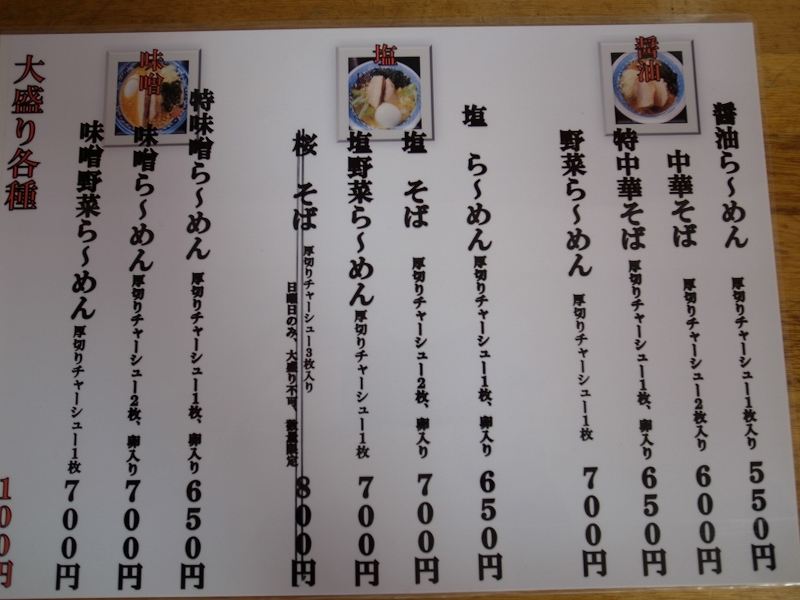 醤油
醤油ら〜めん 厚切りチャーシュー1枚、卵入り 550円
中華そば 厚切りチャーシュー2枚、卵入り 600円
特中華そば 厚切りチャーシュー1枚、卵入り 650円
野菜ら〜めん 厚切りチャーシュー1枚 700円
塩
塩 ら〜めん 厚切りチャーシュー1枚、卵入り 650円
塩 そば 厚切りチャーシュー2枚、卵入り 700円
塩野菜ら〜めん 厚切りチャーシュー1枚 700円
桜 そば 厚切りチャーシュー3枚入り 800円
日曜日のみ、大盛り不可、数量限定
味噌
特味噌ら〜めん 厚切りチャーシュー1枚、卵入り 650円
味噌ら〜めん 厚切りチャーシュー2枚、卵入り 700円
味噌野菜ら〜めん 厚切りチャーシュー1枚 700円
大盛り各種 100円